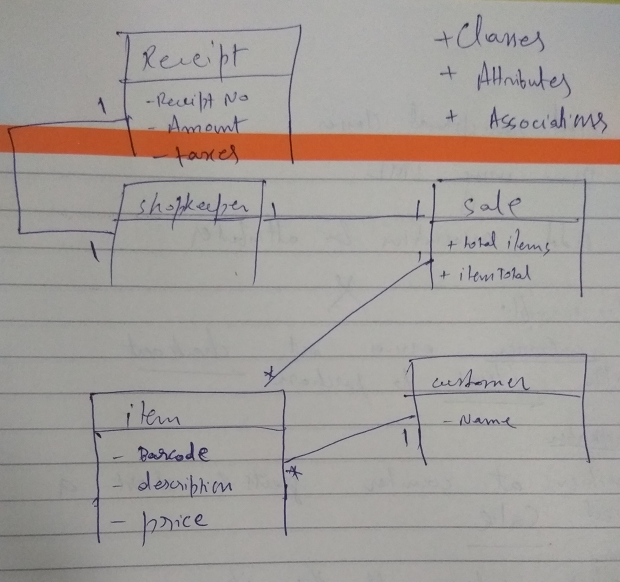 Receipt
- Receipt No
- Amount
- taxes
+ Classes
+ Attributes
+ Associations
1
1
shopkeeper
1
1
sale
+ total items
+ item Total
1
*
item
- Barcode
- description
- price
*
1
customer
- Name